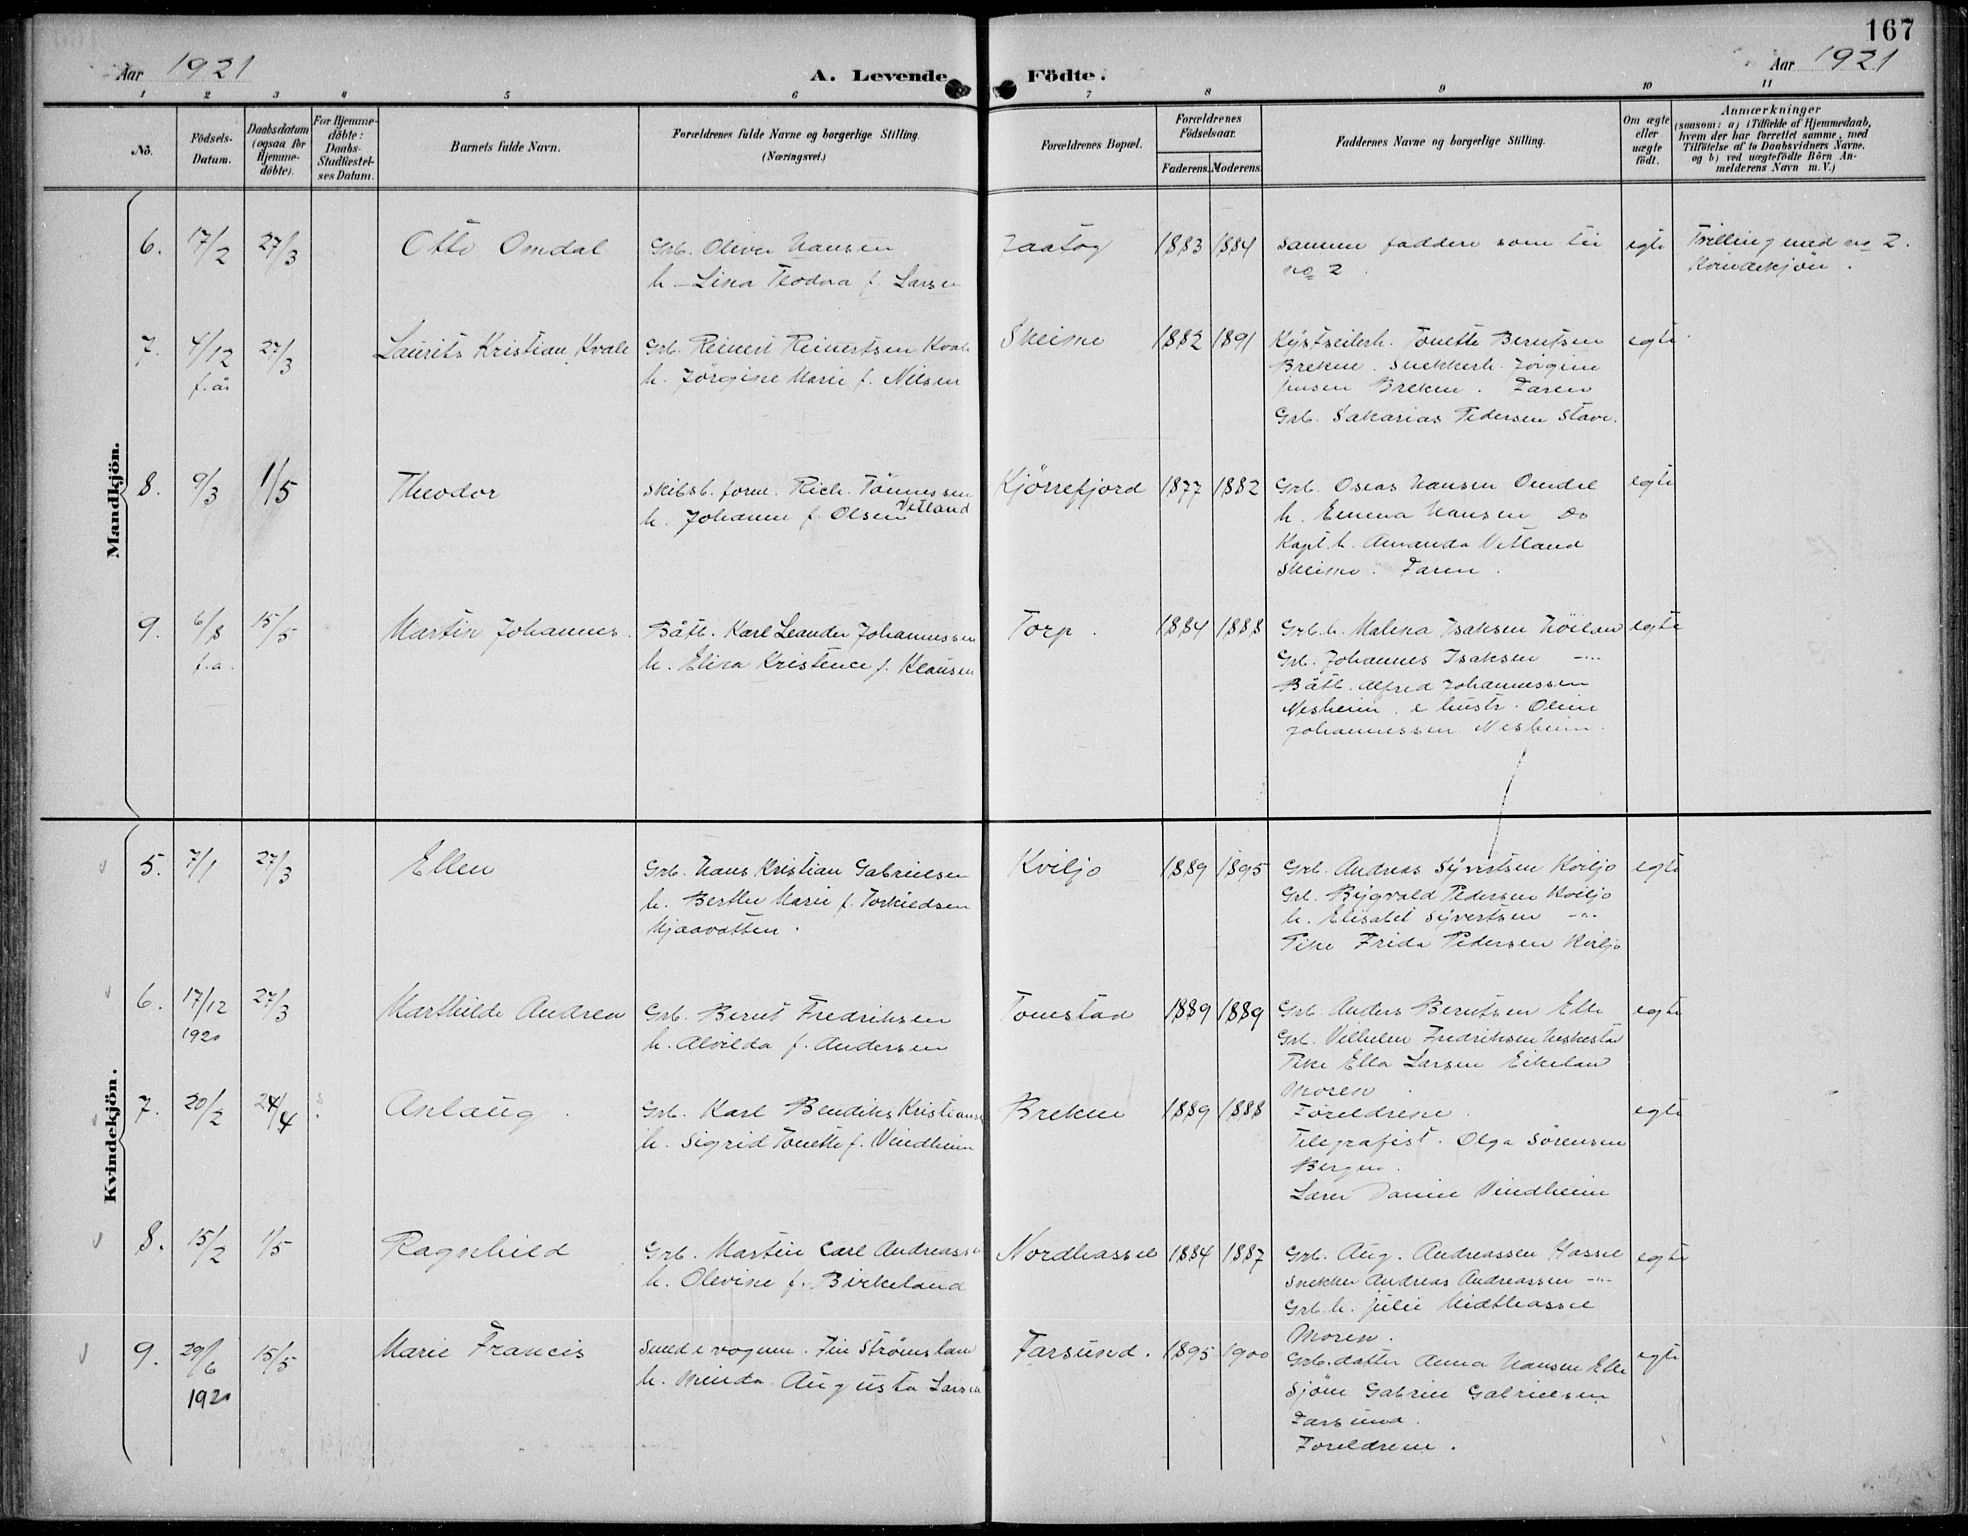 167
Aar 1921 A. Levende Födte. Aar 1921
1 2 3 4 5 6 7 8 9 10 11
No.
Födsels-
Datum.
Daabsdatum
(ogsaa for
Hjemme-
döbte).
For Hjemme-
döbte:
Daabs-
Stadfæstel-
ses Datum.
Barnets fulde Navn.
Forældrenes fulde Navne og borgerlige Stilling.
(Næringsvei.)
Forældrenes Bopæl.
Forældrenes
Födselsaar.
Faderens. Moderens.
Faddernes Navne og borgerlige Stilling.
Om ægte
eller
uægte
födt.
Anmærkninger
(saasom: a) i Tilfælde af Hjemmedaab,
hvem der har forrettet samme, med
Tilföielse af to Daabsvidners Navne.
og b) ved uægtefödte Börn An-
melderens Navn m. V.)
Mandkjön.
6. 17/2 27/3 Otto Omdal
Grb. Oliver Hansen
h. Lina Teodora f. Larsen
Jaatog 1883 1884
Samme faddere som til
no 2.
egte
Tvilling med no 2.
Kvindekjön.
7. 4/12 27/3 Laurits Kristian Kvale
f.år
Grb. Reinert Reinertsen Kvale
h. Jörgine Marie f. Nilsen
Skeime 1882 1891
Kystseilerh. Tonette Berntsen
Brekne. Snekkerh. Jörgine
Jensen Brekne. Faren
Grb. Sakarias Pedersen Stave.
egte
8. 9/3 1/5 Theodor
Skibsb. form. Rich. Tönnessen
Vetland
h. Johanne f. Olsen
Kjørrefjord 1877 1882
Grb. Oscar Hansen Omdal
h. Emma Hansen Do
Kapt. h. Amanda Vetland
Skeime. Faren.
egte
9. 6/8 15/5 Martin Johannes.
f.a.
Båtb. Karl Leander Johannessen
h. Elisa Kristence f. Klausen
Torp. 1884 1888
Grb. h. Malena Isaksen Höiland
Grb. Johannes Isaksen -"-
Båtb. Alfred Johannessen
Nesheim. & hustr. Oline
Johannessen Nesheim.
egte
Kvindekjön.
5. 7/1 27/3 Ellen
Grb. Hans Kristian Gabrielsen
h. Berthe Marie f. Torkildsen
Mjaavatten.
Kviljo 1889 1895
Grb. Andreas Syvertsen Kviljo
Grb. Rygvald Pedersen Kviljo
h. Elisabet Syvertsen -"-
Pike Frida Pedersen Kviljo
egte
6. 17/12 27/3 Marthilde Andrea
1920
Grb. Bernt Fredriksen
h. Alvilda f. Andersen
Tomstad 1889 1889
Grb. Anders Berntsen Elle
Grb. Vilhelm Fredriksen
Pike Ella Larsen Eikeland
Moren
egte
7. 20/2 24/4 Anlaug.
Grb. Karl Bendiks Kristiansen
h. Sigrid Tonette f. Vindheim
Brekne 1889 1888
Foreldrene.
Telegrafist. Olga Sörensen
Bergen.
Lærer Vindheim
egte
8. 15/2 1/5 Ragnhild
Grb. Martin Carl Andreassen
h. Olevine f. Birkeland
Nordhassel 1884 1887
Grb. Aug. Andreassen Hassel
Snekker Andreas Andreassen -"-
Grb. h. Julie Midthassel
Moren.
egte
9. 29/6 15/5 Marie Francis
1920
Smed & vognm. Strömsland
h. Minda Augusta Larsen
Farsund. 1895 1900
Grb. datter Anna Hansen Elle
Sjöm Gabriel Gabrielsen
Farsund.
Foreldrene.
egte